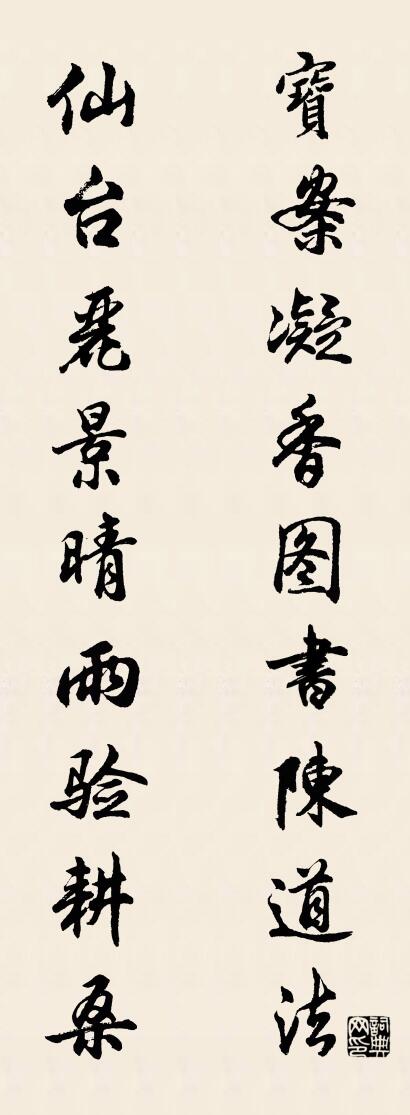 寶案凝香图書陳道法
仙台麗景晴雨验耕桑
詞典網印